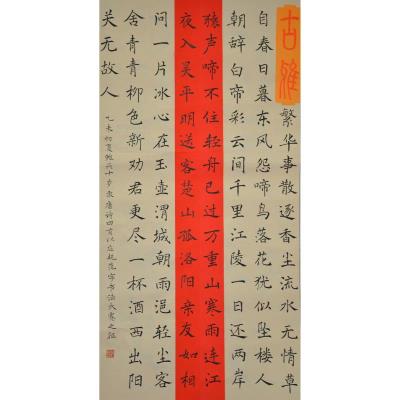 古雅
繁华事散逐香尘流水无情草
自春日暮东风怨啼鸟落花犹似坠楼人
朝辞白帝彩云间千里江陵一日还两岸
猿声啼不住轻舟已过万重山寒雨连江
夜入吴平明送客楚山孤洛阳亲友如相
问一片冰心在玉壶渭城朝雨浥轻尘客
舍青青柳色新劝君更尽一杯酒西出阳
关无故人
乙未初夏 唐诗四首以应 书法大赛之征